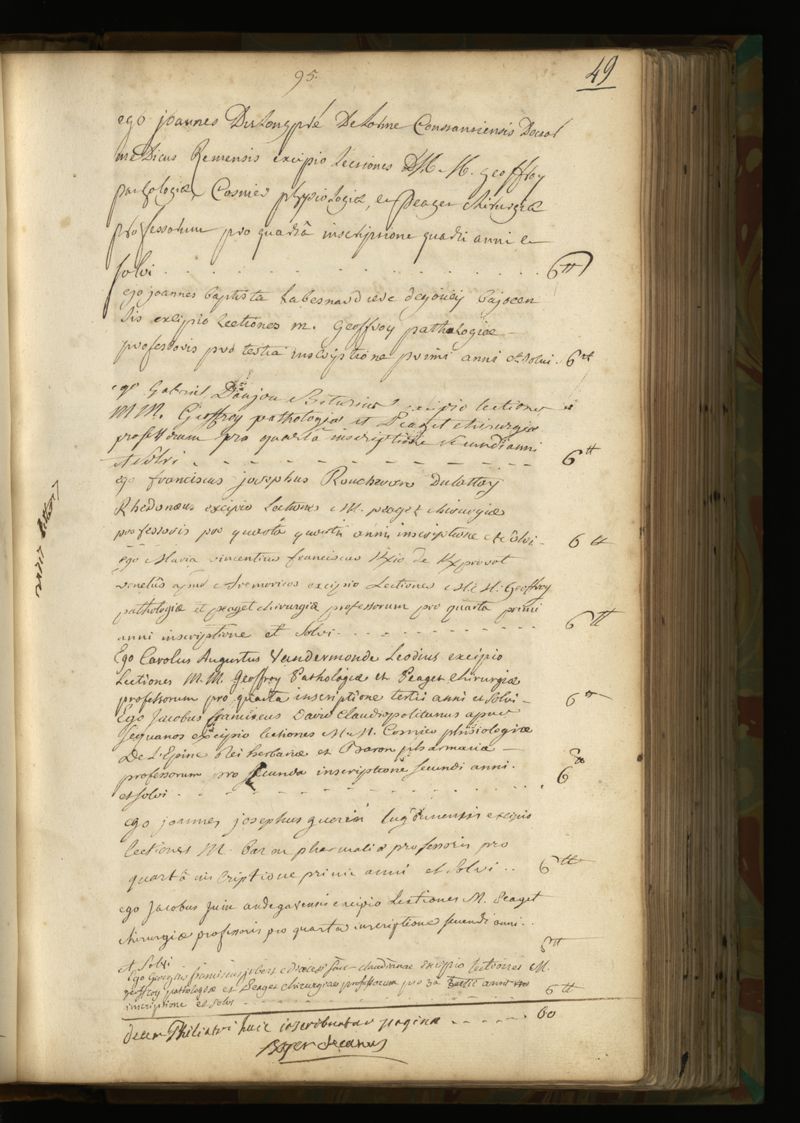 95.
49
ego joannes Deslongpré Delohne Constansiensis Doctor
medicus Remensis excipio lectiones D.M. M. geoffroy
pathologiæ, Cosnier physiologiæ, et Peaget chirurgiæ
professorum pro quartâ inscriptione quarti anni et
solvi . . . . . . . . . . . 6 tt
ego joannes baptista bajocen
sis excipio lectiones m. Geoffroy pathologiæ
professoris pro tertia inscriptione primi anni et solui . 6 tt
ego Gabriel Danjou Bituricus excipio lectiones
MM. Geoffroy pathologiæ et Peaget chirurgiæ
professorum pro quartâ inscriptione secundi anni
et solvi - - - - - - - - - 6 tt
ego franciscus josephus Roucheron Dulattay
Rhedonæus excipio lectiones M. peaget chirurgiæ
professoris pro quartâ quarti anni inscriptione et solvi - 6 tt
ego Maria vincentius franciscus de
venetus apud Aremoricos excipio Lectiones M.M. Geoffroy
pathologiæ et peaget chirurgiæ professorum pro quarta primi
anni inscriptione et solvi . . . . . . . 6 tt
Ego Carolus Augustus Vandermonde Leodius excipio
Lectiones M.M. Geoffroy Pathologiæ et Peaget Chirurgiæ
professorum pro quarta inscriptione tertii anni et solvi - 6 tt
Ego Jacobus franciscus David Claudiopolitanus apud
Sequanos excipio lectiones M.M. Cosnier phisiologiæ
De L'Epine Rei herbariæ et Baron pharmaciæ -
professorum pro secunda inscriptione secundi anni.
et solvi - - - - - - - - 6 tt
ego joannes josephus guerin lugdunensis excipio
lectiones M. baron pharmaciæ professoris pro
quartâ inscriptione primi anni et solvi . . 6 tt
ego Jacobus Juin andegavensis excipio Lectiones M. Peaget
chirurgiæ professoris pro quarta inscriptione secundi anni . .
et solvi 6 tt
Ego Georgius franciscus diœcesis sanc-claudianæ excipio lectiones M.
geoffroy pathologiæ et Peaget chirurgiæ professorum pro 3a tertii anni
inscriptione et solvi - - - - - - 6 tt
decem Philiatri huic inscribuntur paginæ - - - - - 60
Boyer decanus